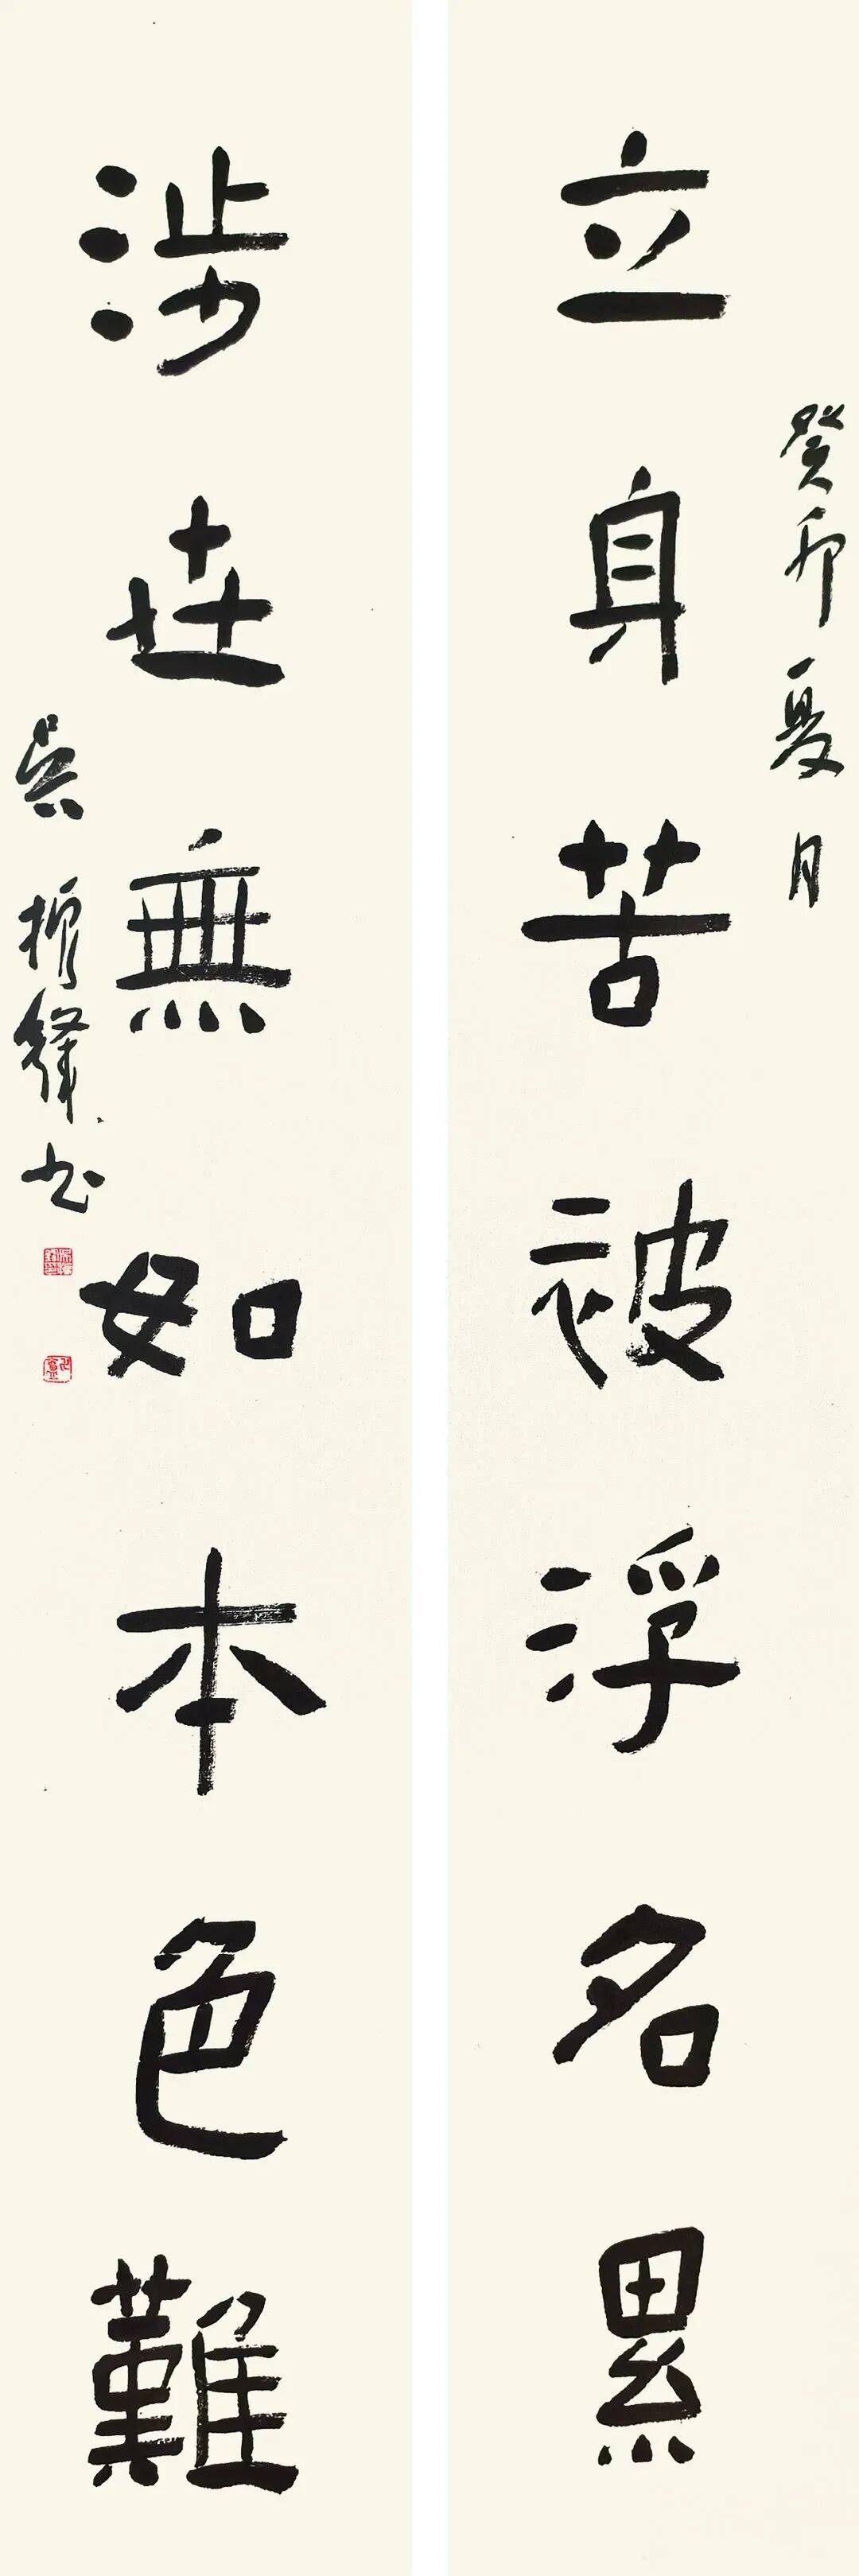 癸卯夏月
立身苦被浮名累
涉世無如本色難
吳 書